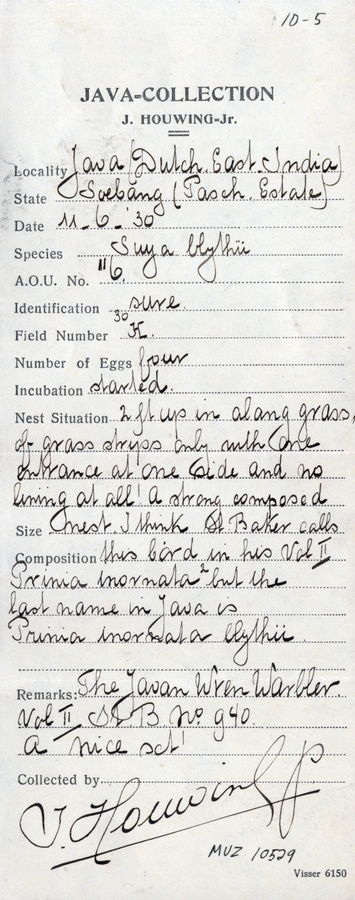 10-5
JAVA-COLLECTION
J. HOUWING-Jr.
Locality Java (Dutch. East. India)
State Soebang (Pasch. Estate)
Date 11-6-'30
Species Suya blythii
A.O.U. No. "6.
Identification sure.
Field Number 30 K.
Number of Eggs four
Incubation started.
Nest Situation 2 ft up in alang grass,
of grass stryps only with one
entrance at one side and no
lining at all! A strong composed
Size nest. I think St Baker calls
Composition this bird in his Vol II
Prinia inornata but the
last name in Java is
Prinia inornata blythii.
Remarks: The Javan Wren Warbler.
Vol II St. B No. 940.
A nice set!
Collected by
J. Houwing Jr
MVZ 10529
Visser 6150